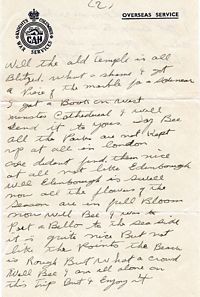 (2)
OVERSEAS SERVICE
KNIGHTS OF COLUMBUS
WAR SERVICES
Well the old Temple is all
Blitzed. What a shame I got
a Piece of the marble for a Sovenear
I got a Book on West
minster Cathederal & will
send it to you. Say Bee
all the Parks are not Kept
up at all in London.
did not find them nice
at all not like Edinbourgh
Well Edinbourgh is Swell
now all the flowers of the
Season are in full Bloom
now Well Bee I was to
Port a Bello to the sea side
it is quite nice But not
like the Points the Beach
is Rough But what a crowd
Well Bee I am all alone on
this Trip But I Enjoy it